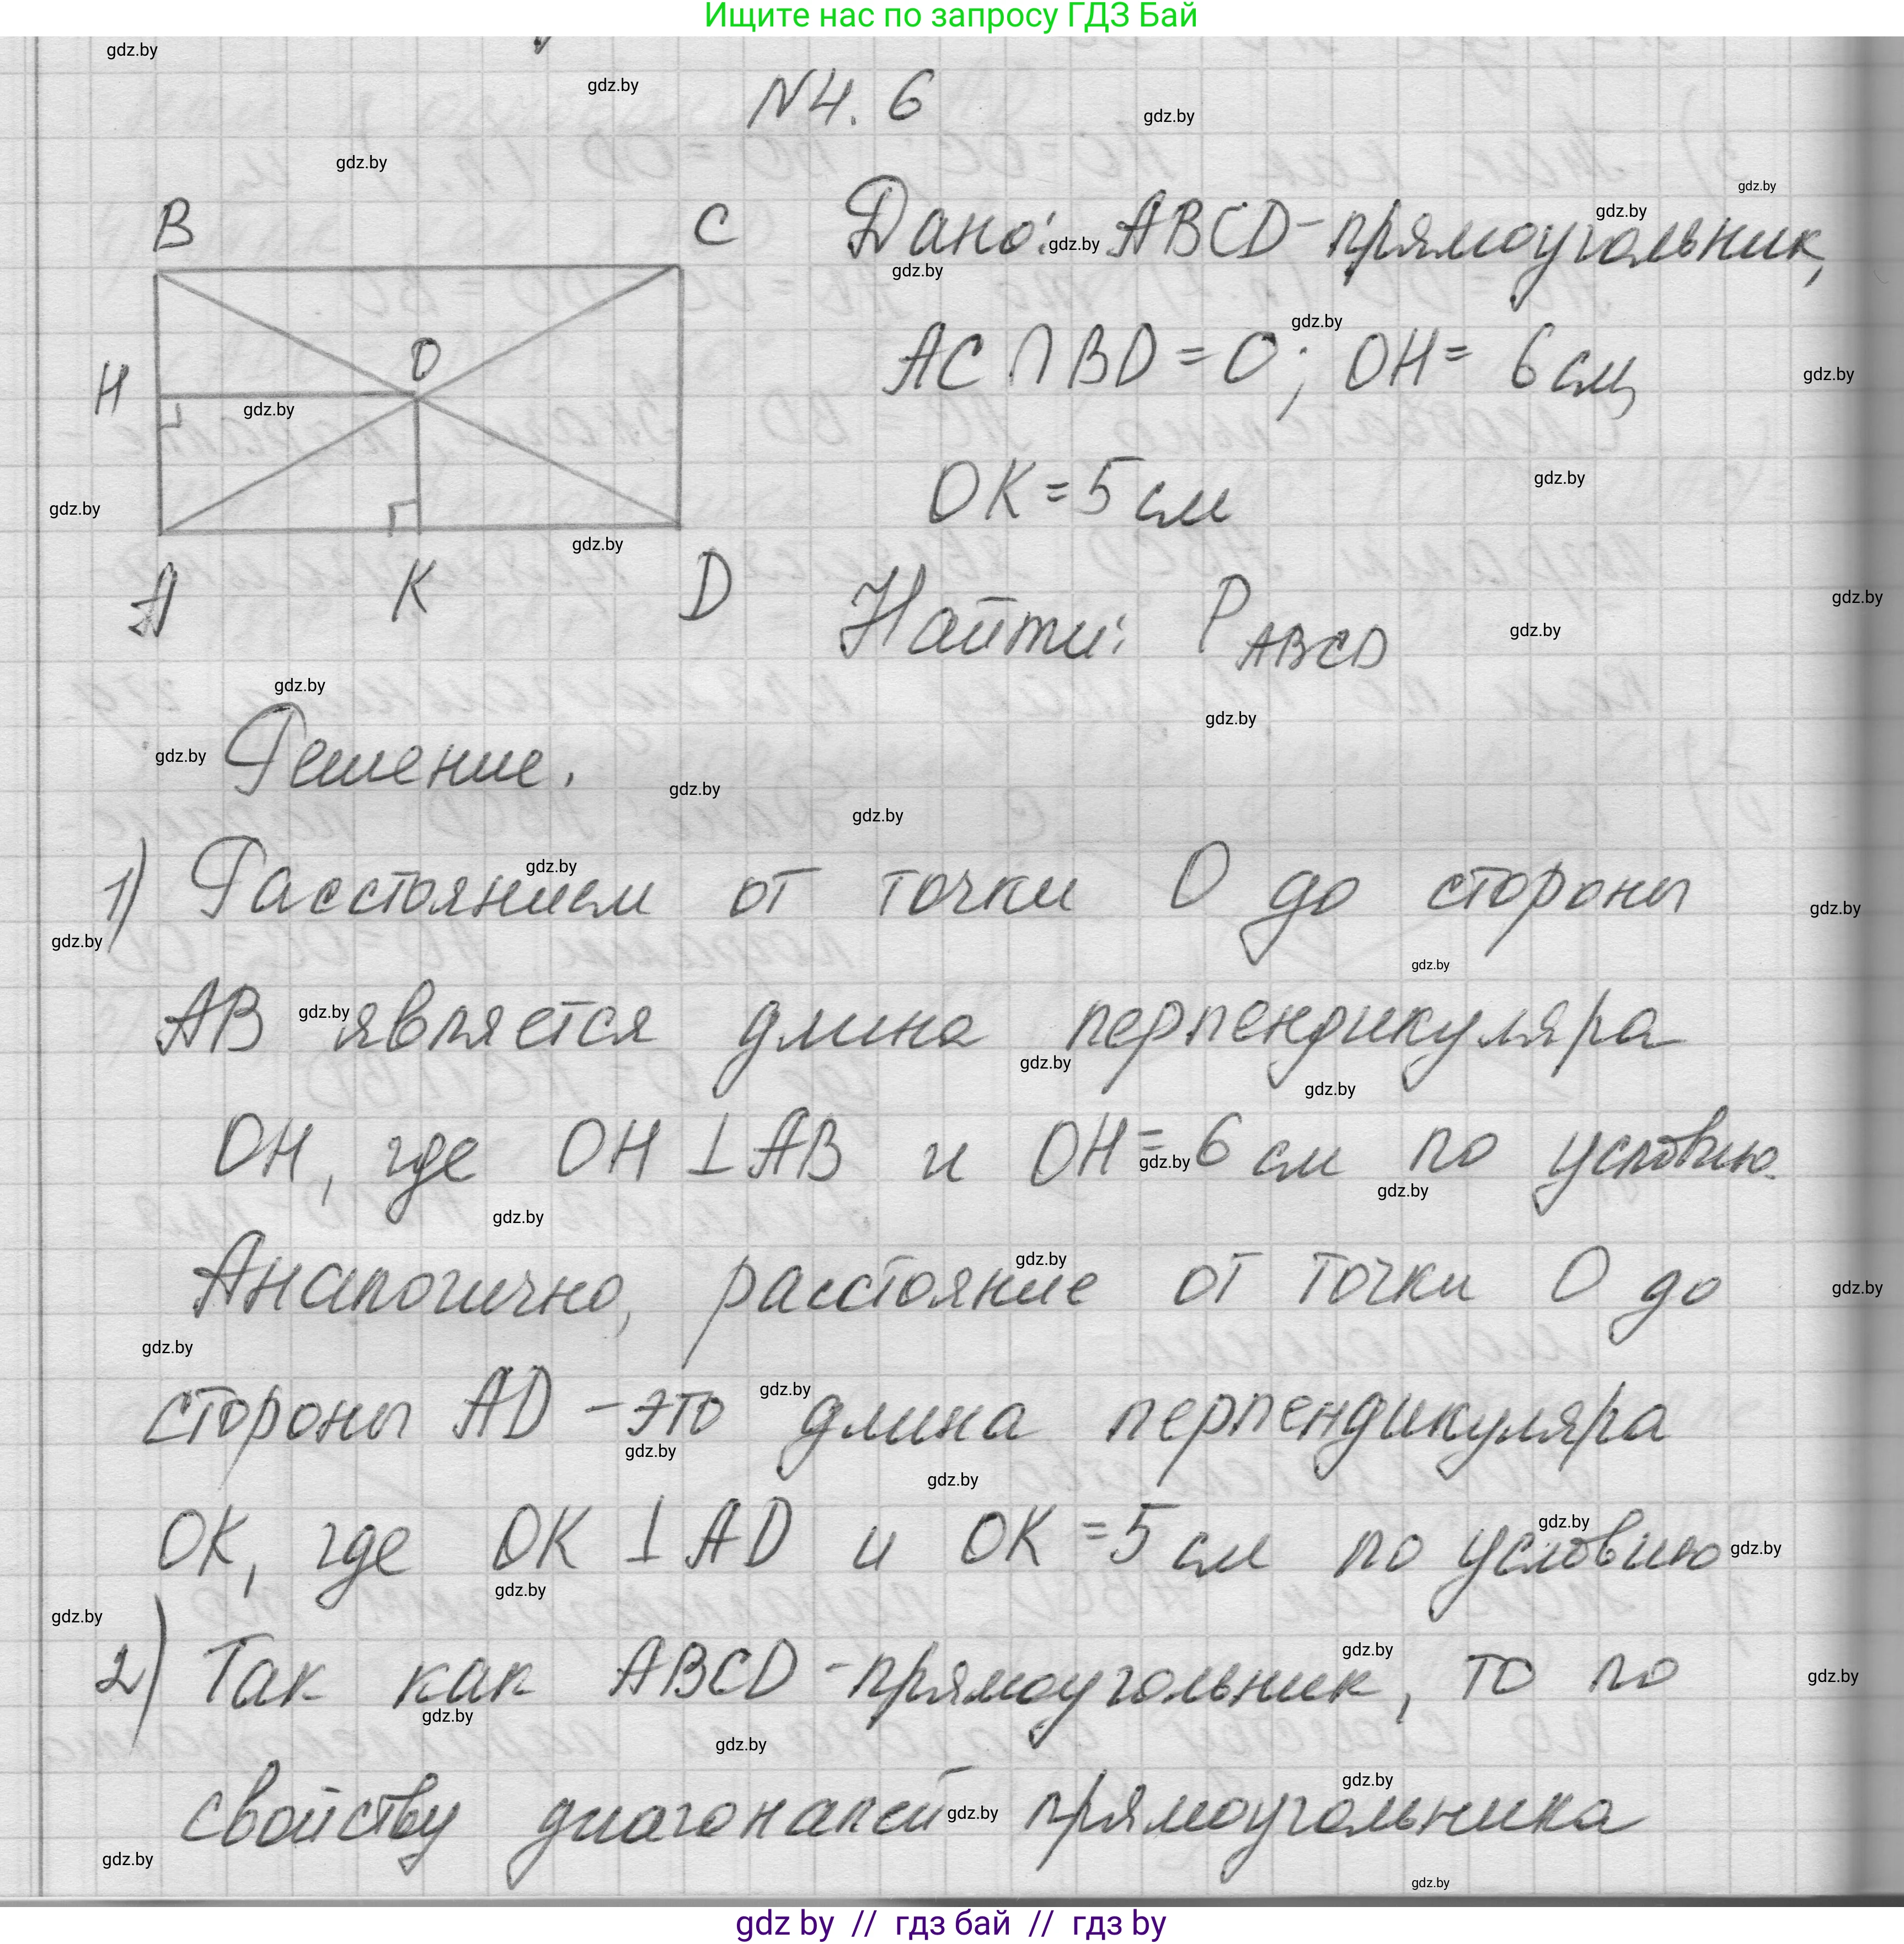 Ищите нас по запросу ГДЗ Бай
N4. 6
B C
H O
A K D
Дано: ABCD-прямоугольник,
AC ∩ BD = O; OH = 6 см,
OK = 5 см
Найти: P ABCD
Решение.
1) Расстоянием от точки O до стороны
AB является длина перпендикуляра
OH, где OH ⊥ AB и OH = 6 см по условию.
Аналогично, расстояние от точки O до
стороны AD - это длина перпендикуляра
OK, где OK ⊥ AD и OK = 5 см по условию
2) Так как ABCD - прямоугольник, то по
свойству диагоналей прямоугольника
gdz by // гдз бай // гдз by